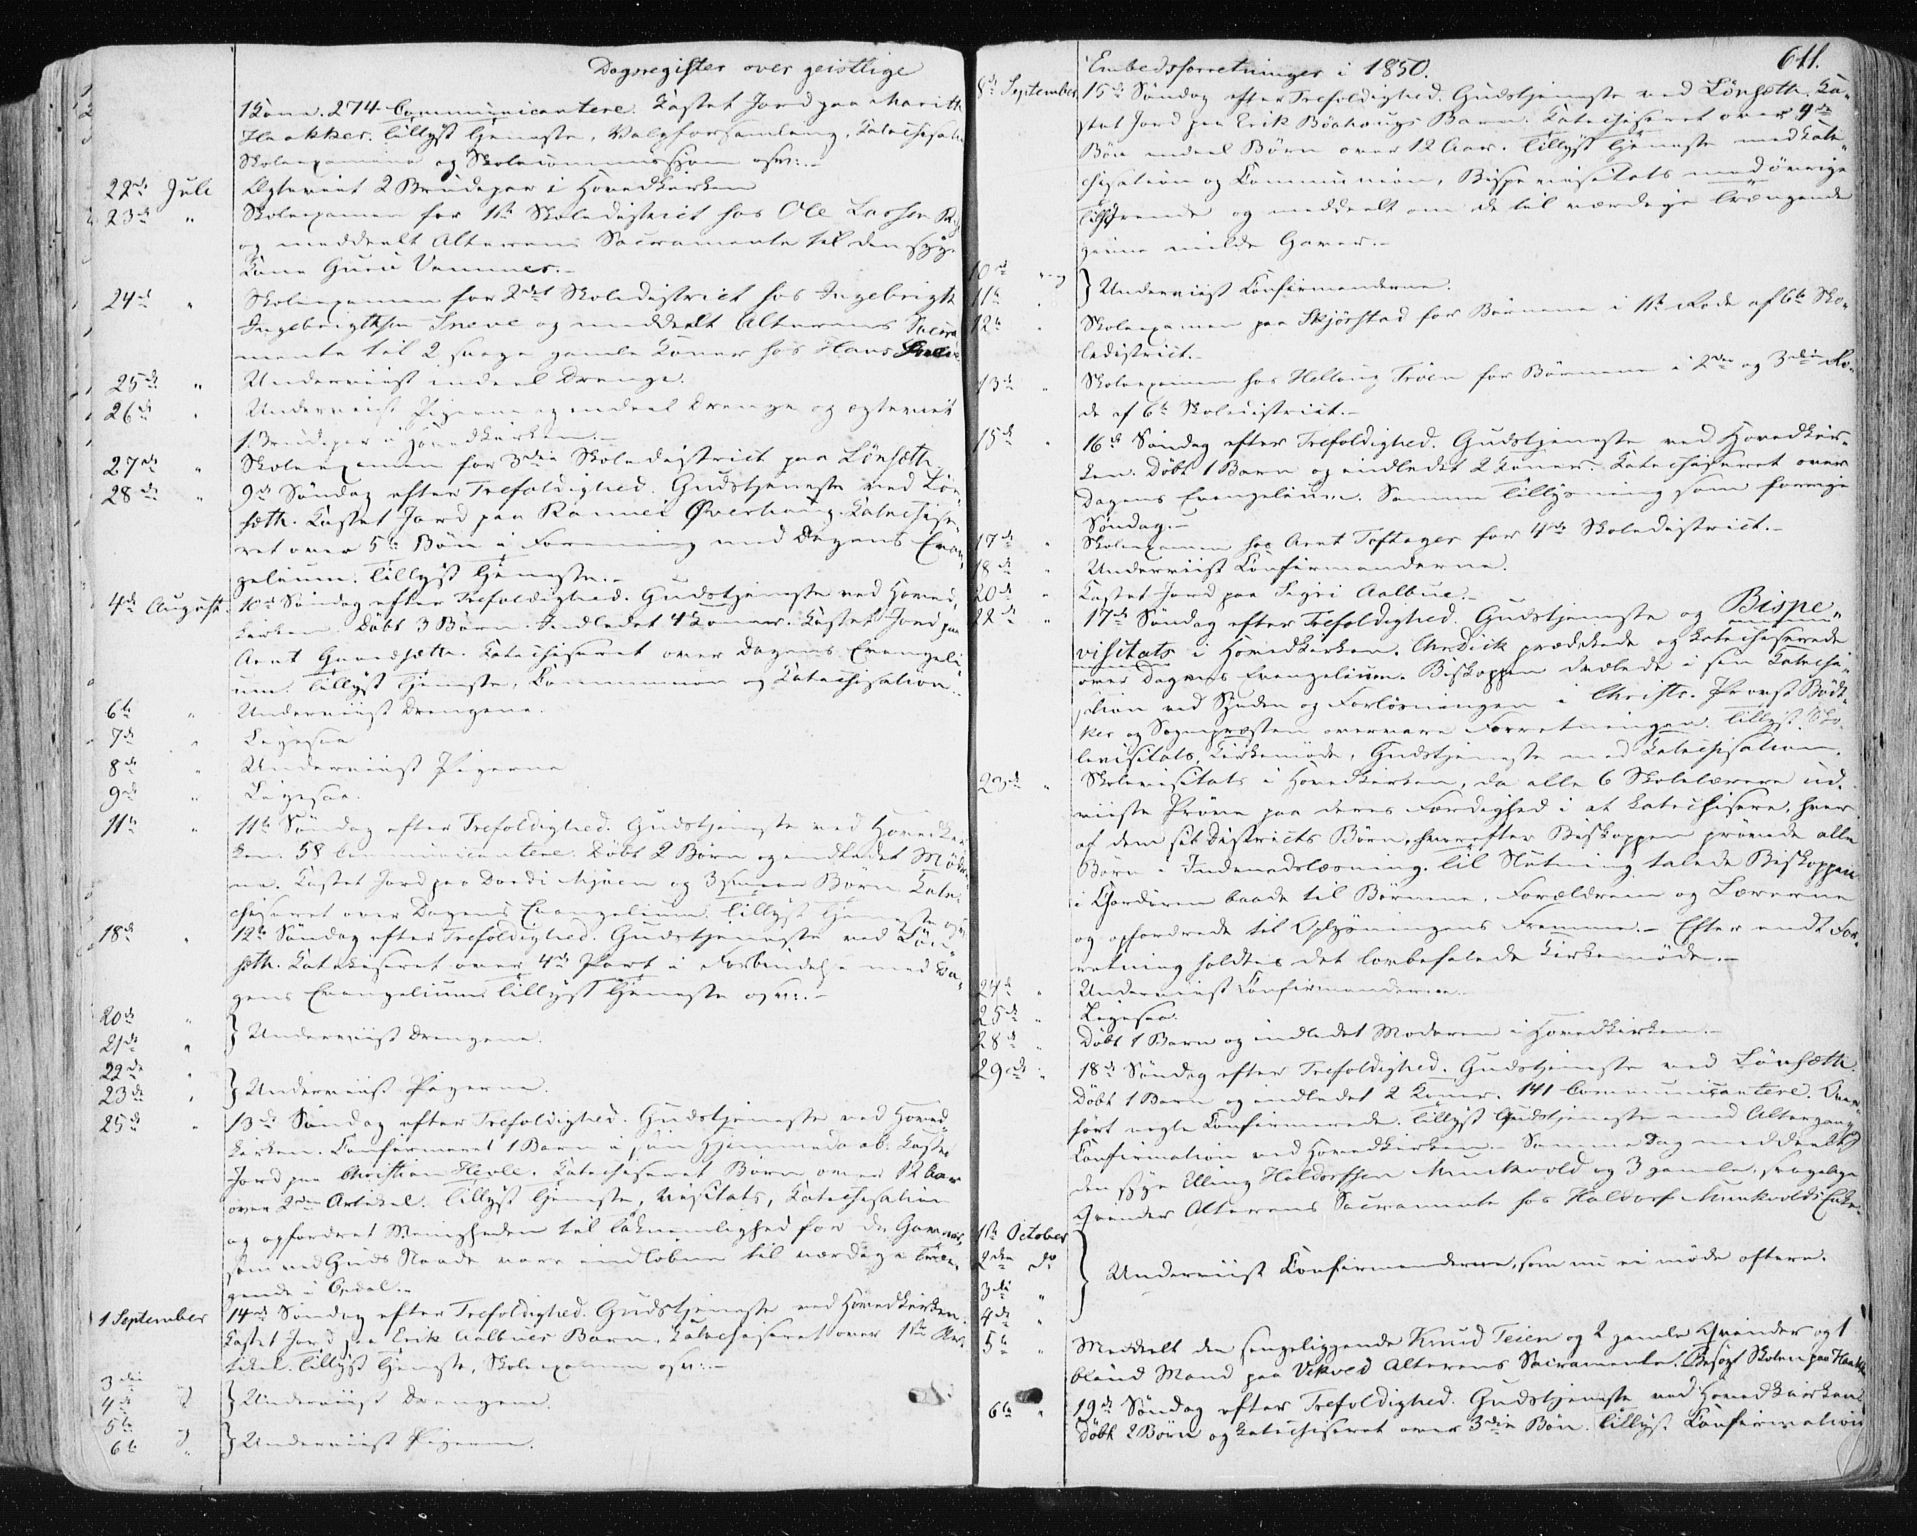 Dagsregister over geistlige
1 Kone. 274 Communicantere. Kastet Jord paa Marith
Haakker. Tillyst Tjeneste, Valgforsamling, Katechisation
Skoleexamina og Skolecommission osv.
22de Juli Ægteviet 2 Brudepar i Hovedkirken
23de " Skoleexamen for 1ste Skoledistrict hos Ole Larsen
og meddeelt Alterens Sacramente til den syge
Kone Guru Vammer.
24de " Skoleexamen for 2det Skoledistrict hos Ingebrigt
Ingebrigtsen Sneve og meddeelt Alterens Sacra
mente til 2 svage gamle Koner hos Hans
25de " Underviist endeel Drenge.
26de " Underviist Pigerne og endeel Drenge og ægteviet
1 Brudepar i Hovedkirken.
27de " Skoleexamen for 3die Skoledistrict paa Lönseth
28de " 9de Söndag efter Trefoldighed. Gudstjeneste ved Lön
seth. Kastet Jord paa Rannei Øverhaug. Katechise
ret over 5te Bön i Forening med Dagens Evan
gelium. Tillyst Tjeneste.
4de August 10de Söndag efter Trefoldighed. Gudstjeneste ved Hoved
kirken. Döbt 3 Börn. Indledet 4 Koner. Kastet Jord paa
Arnt Katechiseret over Dagens Evangeli
um. Tillyst Tjeneste, Communion og Katechisation.
6te " Underviist Drengene.
7de " Ligesaa
8de " Underviist Pigerne
9de " Ligesaa.
11te " 11te Söndag efter Trefoldighed. Gudstjeneste ved Hovedkir
ken. 58 Communicantere. Döbt 2 Börn og indledet Mödre
ne. Kastet Jord paa Dordi Mjöen og 3 Börn. Kate
chiseret over Dagens Evangelium. Tillyst Tjeneste osv.
18de " 12te Söndag efter Trefoldighed. Gudstjeneste ved Lön
seth. Katekiseret over 4de Part i Forbindelse med Da
gens Evangelium. Tillyst Tjeneste osv.
20de "
21de " } Underviist Drengene.
22de "
23de " } Underviist Pigerne.
25de " 13de Söndag efter Trefoldighed. Gudstjeneste ved Hoved
kirken. Confirmeret 1 Barn i sin Kastet
Jord paa Christian Hevle. Katechiseret Börn over 12 Aar
over 2den Artikel. Tillyst Tjeneste, Visitats, Katechisation
og opfordret Menigheden til Taknemlighed for de Gaver,
som ved Guds Naade vare indlöbne til værdige Træn
gende i Opdal.
1 September 14de Söndag efter Trefoldighed. Gudstjeneste ved Hovedkirken.
Kastet Jord paa Erik Aalbues Barn. Katechiseret over 1ste Ar
tikel. Tillyst Tjeneste, Skoleexamen osv.
3die
4de " } Underviist Drengene.
5te "
6te " } Underviist Pigerne.
Embedsforretninger i 1850.
611.
8de September 15de Söndag efter Trefoldighed. Gudstjeneste ved Lönseth. Ka
stet Jord paa Erik Böehaugs Barn. Katechiseret over 4de
Bön endeel Börn over 12 Aar. Tillyst Tjeneste med Kate
chisation og Communion, Bispevisitats med övrige
Tilhörende og meddeelt om de til værdige trængende
givne milde Gaver.
10de
11te " } Underviist Confirmanderne.
12te " Skoleexamen paa Skjörstad for Börnene i 1ste Rode af 6te Sko
ledistrict.
13de " Skoleexamen hos Helloug Troen for Börnene i 2den og 3die Ro
de af 6te Skoledistrict.
15de " 16de Söndag efter Trefoldighed. Gudstjeneste ved Hovedkir
ken. Döbt 1 Barn og indledet 2 Koner. Katechiseret over
Dagens Evangelium. Samme Tillysning som forrige
Söndag.
17de " Skoleexamen hos Arnt Toftager for 4de Skoledistrict.
18de " Underviist Confirmanderne.
20de " Kastet Jord paa Sigri Aalbue.
22de " 17de Söndag efter Trefoldighed. Gudstjeneste og Bispe
visitats i Hovedkirken. prædikede og katechiserede
over Dagens Evangelium. Biskoppen dvælede i sin Katechi
sation ved Synden og Forlösningen i Christo. Provst Bödt
ker og Sognepræsten overvare Forretningen. Tillyst Sko
levisitats, Kirkemöde, Gudstjeneste med Katechisation.
23de " Skolevisitats i Hovedkirken, da alle 6 Skolelærere ud
viiste Pröve paa deres Færdighed i at katechisere, hver
af dem sit Districts Börn, hvorefter Biskoppen prövede alle
Börn i Indenadslæsning. Til Slutning talede Biskoppen
i Chordören baade til Börnene, Forældrene og Lærerne
og opfordrede til Oplysningens Fremme. Efter endt For
retning holdtes det lovbefalede Kirkemöde.
24de " Underviist Confirmanderne.
25de " Ligesaa.
28de " Döbt 1 Barn og indledet Moderen i Hovedkirken.
29de " 18de Söndag efter Trefoldighed. Gudstjeneste ved Lönseth.
Döbt 1 Barn og indledet 2 Koner. 141 Communicantere. Over
hört nogle Confirmerede. Tillyst Gudstjeneste med Altergang,
Confirmation ved Hovedkirken. Samme Dag meddeelt
den syge Elling Haldorsen Munkvold og 3 gamle, svagelige
Qvinder Alterens Sacramente hos Haldor Munkvolds Enke.
1ste October
2den do
3die " } Underviist Confirmanderne, som nu ei möde oftere.
4de "
5te " Meddeelt den sengeliggende Knud Teien og 2 gamle Qvinder og 1
blind Mand paa Vikved Alterens Sacramente. Besögt Skolen paa
6te " 19de Söndag efter Trefoldighed. Gudstjeneste ved Hovedkirken
Döbt 2 Börn og katechiseret over 3die Bön. Tillyst Confirmation